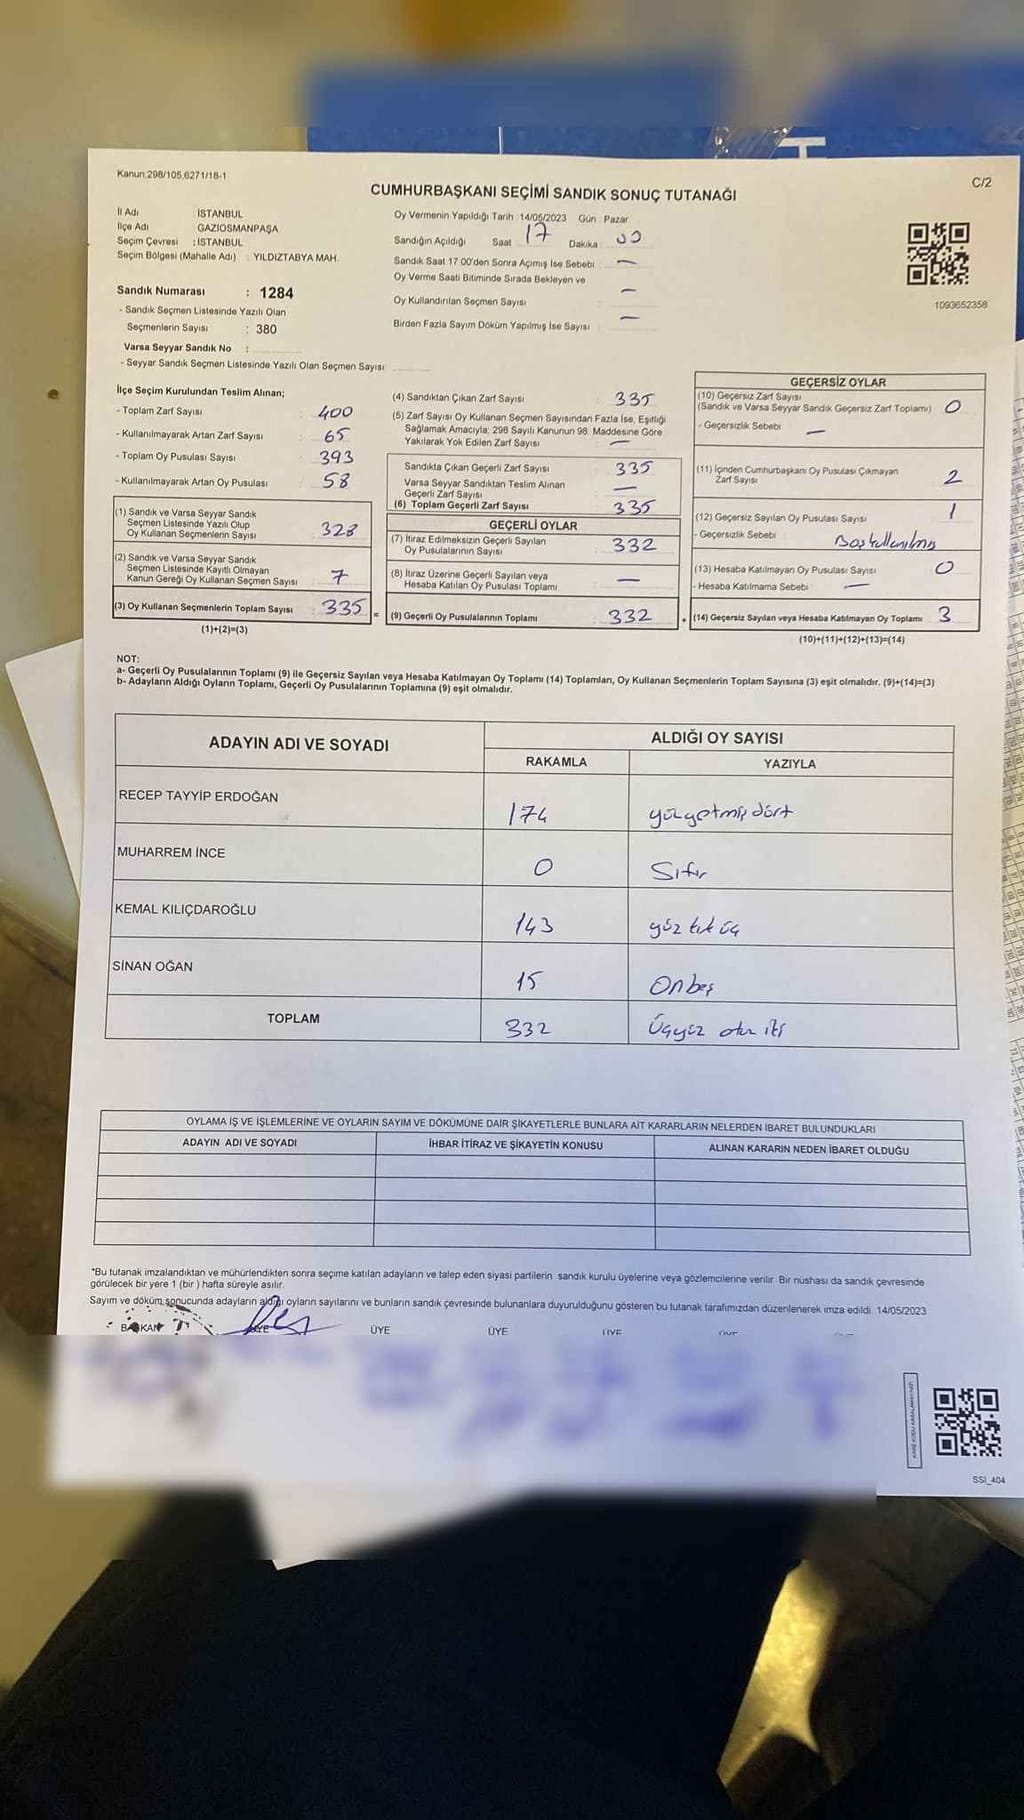 Kanun:298/105,6271/18-1
C/2
CUMHURBAŞKANI SEÇİMİ SANDIK SONUÇ TUTANAĞI
İl Adı : İSTANBUL
İlçe Adı GAZİOSMANPAŞA
Seçim Çevresi : İSTANBUL
Seçim Bölgesi (Mahalle Adı) : YILDIZTABYA MAH.
Sandık Numarası : 1284
- Sandık Seçmen Listesinde Yazılı Olan
Seçmenlerin Sayısı : 380
Varsa Seyyar Sandık No :
- Seyyar Sandık Seçmen Listesinde Yazılı Olan Seçmen Sayısı
Oy Vermenin Yapıldığı Tarih 14/05/2023 Gün Pazar
Sandığın Açıldığı Saat 17 Dakika 00
Sandık Saat 17 00'den Sonra Açımış İse Sebebi —
Oy Verme Saati Bitiminde Sırada Bekleyen ve
Oy Kullandırılan Seçmen Sayısı —
Birden Fazla Sayım Döküm Yapılmış İse Sayısı —
1093652358
İlçe Seçim Kurulundan Teslim Alınan;
- Toplam Zarf Sayısı : 400
- Kullanılmayarak Artan Zarf Sayısı : 65
- Toplam Oy Pusulası Sayısı : 393
- Kullanılmayarak Artan Oy Pusulası : 58
(1) Sandık ve Varsa Seyyar Sandık
Seçmen Listesinde Yazılı Olup
Oy Kullanan Seçmenlerin Sayısı : 328
(2) Sandık ve Varsa Seyyar Sandık
Seçmen Listesinde Kayıtlı Olmayan
Kanun Gereği Oy Kullanan Seçmen Sayısı : 7
(3) Oy Kullanan Seçmenlerin Toplam Sayısı : 335 =
(1)+(2)=(3)
(4) Sandıktan Çıkan Zarf Sayısı : 335
(5) Zarf Sayısı Oy Kullanan Seçmen Sayısından Fazla İse, Eşitliği
Sağlamak Amacıyla; 298 Sayılı Kanunun 98. Maddesine Göre
Yakılarak Yok Edilen Zarf Sayısı : —
Sandıkta Çıkan Geçerli Zarf Sayısı : 335
Varsa Seyyar Sandıktan Teslim Alınan
Geçerli Zarf Sayısı : —
(6) Toplam Geçerli Zarf Sayısı : 335
GEÇERLİ OYLAR
(7) İtiraz Edilmeksizin Geçerli Sayılan
Oy Pusulalarının Sayısı : 332
(8) İtiraz Üzerine Geçerli Sayılan veya
Hesaba Katılan Oy Pusulası Toplamı : —
(9) Geçerli Oy Pusulalarının Toplamı : 332 +
GEÇERSİZ OYLAR
(10) Geçersiz Zarf Sayısı
(Sandık ve Varsa Seyyar Sandık Geçersiz Zarf Toplamı) 0
- Geçersizlik Sebebi —
(11) İçinden Cumhurbaşkanı Oy Pusulası Çıkmayan
Zarf Sayısı 2
(12) Geçersiz Sayılan Oy Pusulası Sayısı 1
- Geçersizlik Sebebi Boş kullanılmış
(13) Hesaba Katılmayan Oy Pusulası Sayısı 0
- Hesaba Katılmama Sebebi —
(14) Geçersiz Sayılan veya Hesaba Katılmayan Oy Toplamı 3
(10)+(11)+(12)+(13)=(14)
NOT:
a- Geçerli Oy Pusulalarının Toplamı (9) ile Geçersiz Sayılan veya Hesaba Katılmayan Oy Toplamı (14) Toplamları, Oy Kullanan Seçmenlerin Toplam Sayısına (3) eşit olmalıdır. (9)+(14)=(3)
b- Adayların Aldığı Oyların Toplamı, Geçerli Oy Pusulalarının Toplamına (9) eşit olmalıdır.
ADAYIN ADI VE SOYADI
ALDIĞI OY SAYISI
RAKAMLA YAZIYLA
RECEP TAYYİP ERDOĞAN 174 yüzyetmiş dört
MUHARREM İNCE 0 Sıfır
KEMAL KILIÇDAROĞLU 143 yüz kırk üç
SİNAN OĞAN 15 Onbeş
TOPLAM 332 Üçyüz otuz iki
OYLAMA İŞ VE İŞLEMLERİNE VE OYLARIN SAYIM VE DÖKÜMÜNE DAİR ŞİKAYETLERLE BUNLARA AİT KARARLARIN NELERDEN İBARET BULUNDUKLARI
ADAYIN ADI VE SOYADI İHBAR İTİRAZ VE ŞİKAYETİN KONUSU ALINAN KARARIN NEDEN İBARET OLDUĞU
*Bu tutanak imzalandıktan ve mühürlendikten sonra seçime katılan adayların ve talep eden siyasi partilerin sandık kurulu üyelerine veya gözlemcilerine verilir. Bir nüshası da sandık çevresinde
görülecek bir yere 1 (bir ) hafta süreyle asılır.
Sayım ve döküm sonucunda adayların aldığı oyların sayılarını ve bunların sandık çevresinde bulunanlara duyurulduğunu gösteren bu tutanak tarafımızdan düzenlenerek imza edildi. 14/05/2023
BAŞKAN ÜYE ÜYE ÜYE ÜYE ÜYE
SSI_404